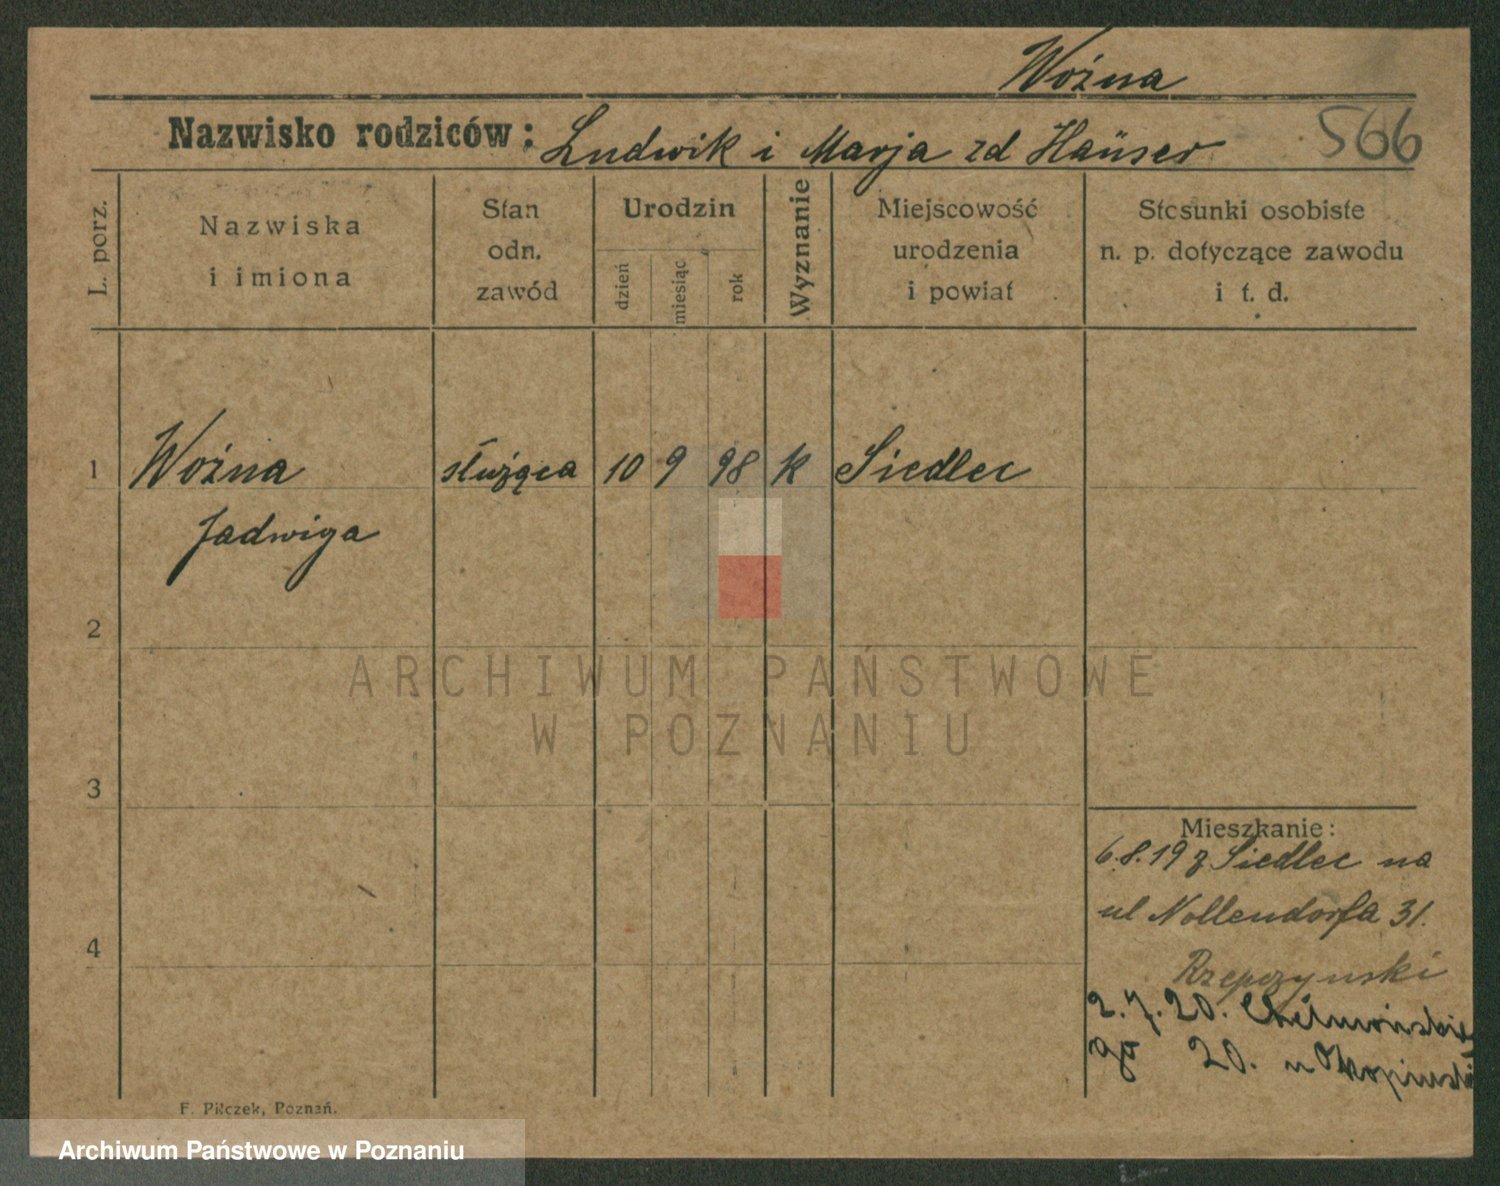 Woźna
Nazwisko rodziców: Ludwik i Marja zd Haüser 566
L. porz.
Nazwiska
i imiona
Stan
odn.
zawód
Urodzin
dzień
miesiąc
rok
Wyznanie
Miejscowość
urodzenia
i powiat
Stosunki osobiste
n. p. dotyczące zawodu
i t. d.
1 Woźna służąca 10 9 98 k Siedlec
Jadwiga
2
ARCHIWUM PAŃSTWOWE
W POZNANIU
3
Mieszkanie:
6.8.19 z Siedlec na
ul Nollendorfa 31.
Rzepczynski
4
2.7.20. Chełmońskie
ga 20. u
F. Pilczek, Poznań.
Archiwum Państwowe w Poznaniu